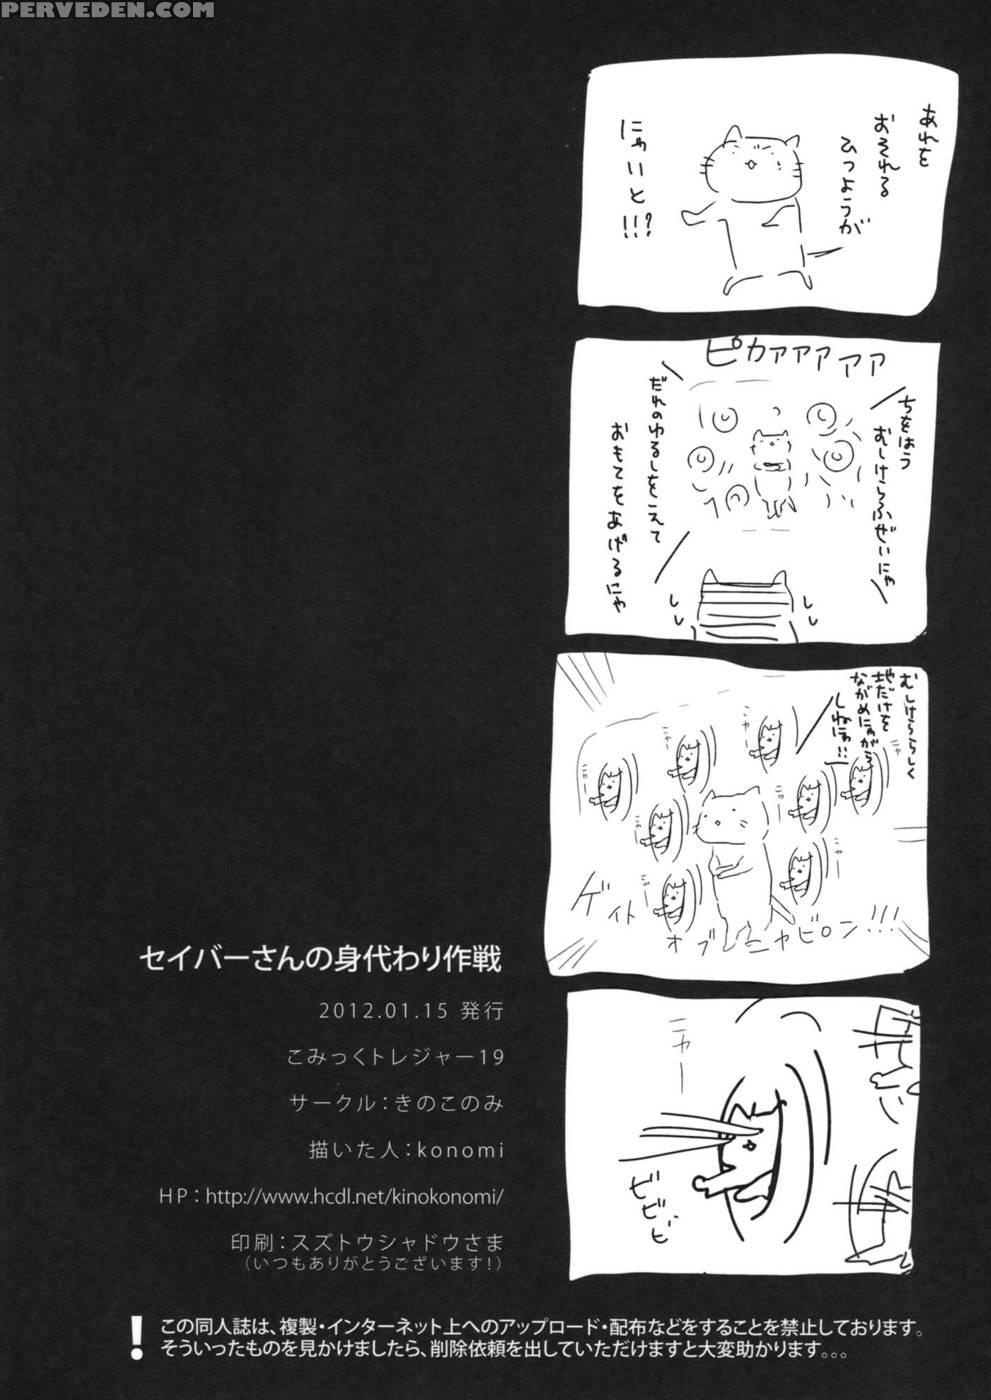 PERVEDEN.COM
あれを
おそれる
ひつようが
にゃいと!!?
ピカァァァァァ
ちをはう
むしけらふぜいにゃ
だれのゆるしをこえて
おもてをあげるにゃ
むしけららしく
地だけを
ながめにゃがら
しねにゃ!!
ニャー
ニャー
ニャー
ニャー
ニャー
ニャー
ニャー
ゲイト
オブ
ニャビロン!!!
ニャー
ビビビ
セイバーさんの身代わり作戦
2012.01.15 発行
こみっくトレジャー19
サークル：きのこのみ
描いた人：konomi
HP：http://www.hcdl.net/kinokonomi/
印刷：スズトウシャドウさま
（いつもありがとうございます！）
! この同人誌は、複製・インターネット上へのアップロード・配布などをすることを禁止しております。
そういったものを見かけましたら、削除依頼を出していただけますと大変助かります。。。